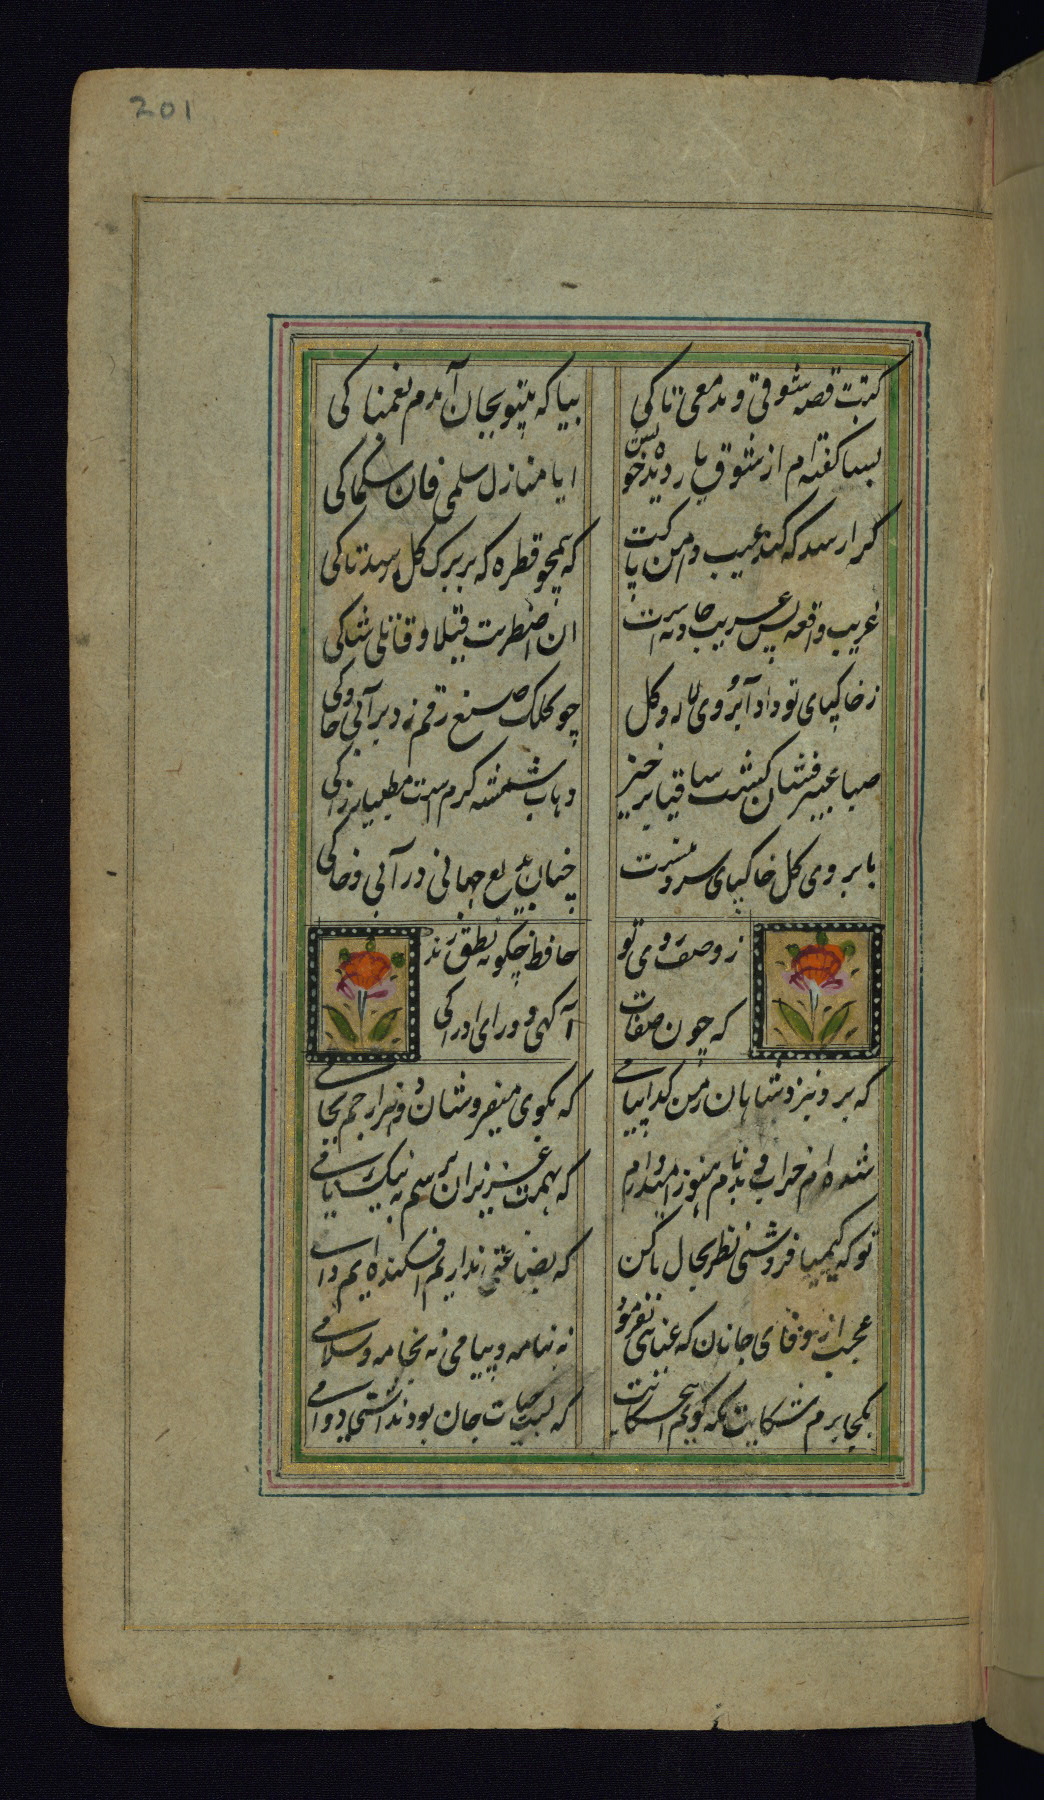 201
کتبت قصه شوقی و مدمعی تاکی
بیا که بیتو بجان آمدم بغمناکی
بسا که گفته‌ام از شوق با دو دیده خویش
ایا منازل سلمی فان سلماکی
کرا رسد که کند عیب دامن پاکت
که همچو قطره که بر برک کل رسد تاکی
غریب واقعه پس غریب حادثه است
ان اضطربت قتیلا و قاتلی شاکی
ز خاکپای تو داد آبروی لاله و کل
چو کلک صنع رقم زد بر آبی و خاکی
صبا عبیر فشان کشت ساقیا برخیز
و هات شمسه کرم است مطیب زاکی
با بروی کل خاکپای سرو
چنان بدیع جهانی در آبی و خاکی
ز وصف روی تو
حافظ چکونه نطق زند
که چون صفات
آگهی ورای ادراکی
که برد بنزد شاهان ز من کدا پیامی
که بکوی میفروشان دو هزار جم بجامی
شده‌ام خراب و بدنام هنوز امیدوارم
که بهمت عزیزان برسم به نیک نامی
تو که کیمیا فروشی نظری بحال ما کن
که بضاعتی نداریم و فکنده‌ایم دامی
عجب از وفای جانان که عنایتی نفرمود
نه بنامه و پیامی نه بخامه و سلامی
بکجا برم شکایت بکه گویم این حکایت
که لبت حیات جان بود نداشتی دوامی